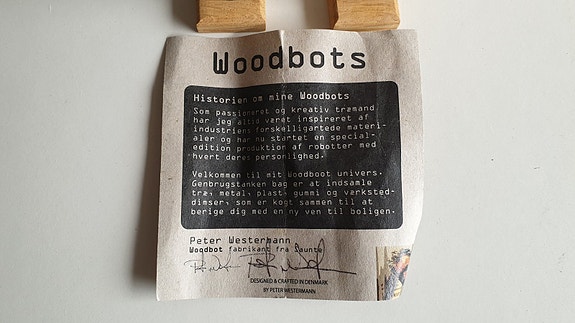 Woodbots
Historien om mine Woodbots
Som passioneret og kreativ træmand
har jeg altid været inspireret af
industriens forskelligartede materi-
aler og har nu startet en special-
edition produktion af robotter med
hvert deres personlighed.
Velkommen til mit Woodboot univers.
Genbrugstanken bag er at indsamle
træ, metal, plast, gummi og værksted-
dimser, som er kogt sammen til at
berige dig med en ny ven til boligen.
Peter Westermann
Woodbot fabrikant fra Saunte
DESIGNED & CRAFTED IN DENMARK
BY PETER WESTERMANN